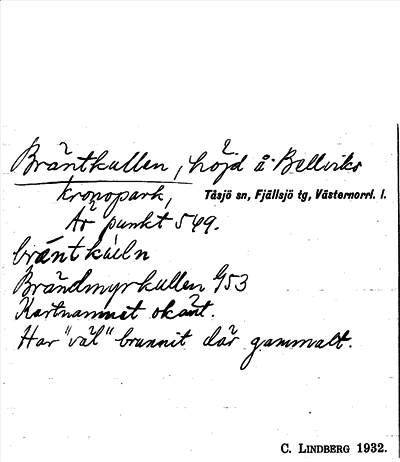 Bräntkullen, höjd å Bellviks
kronopark, Tåsjö sn, Fjällsjö tg, Västernorrl. l.
Är punkt 549.
bräntkáeln
Brändmyrkullen G53
Kartnamnet okänt.
Har "väl" brunnit där gammalt.
C. LINDBERG 1932.